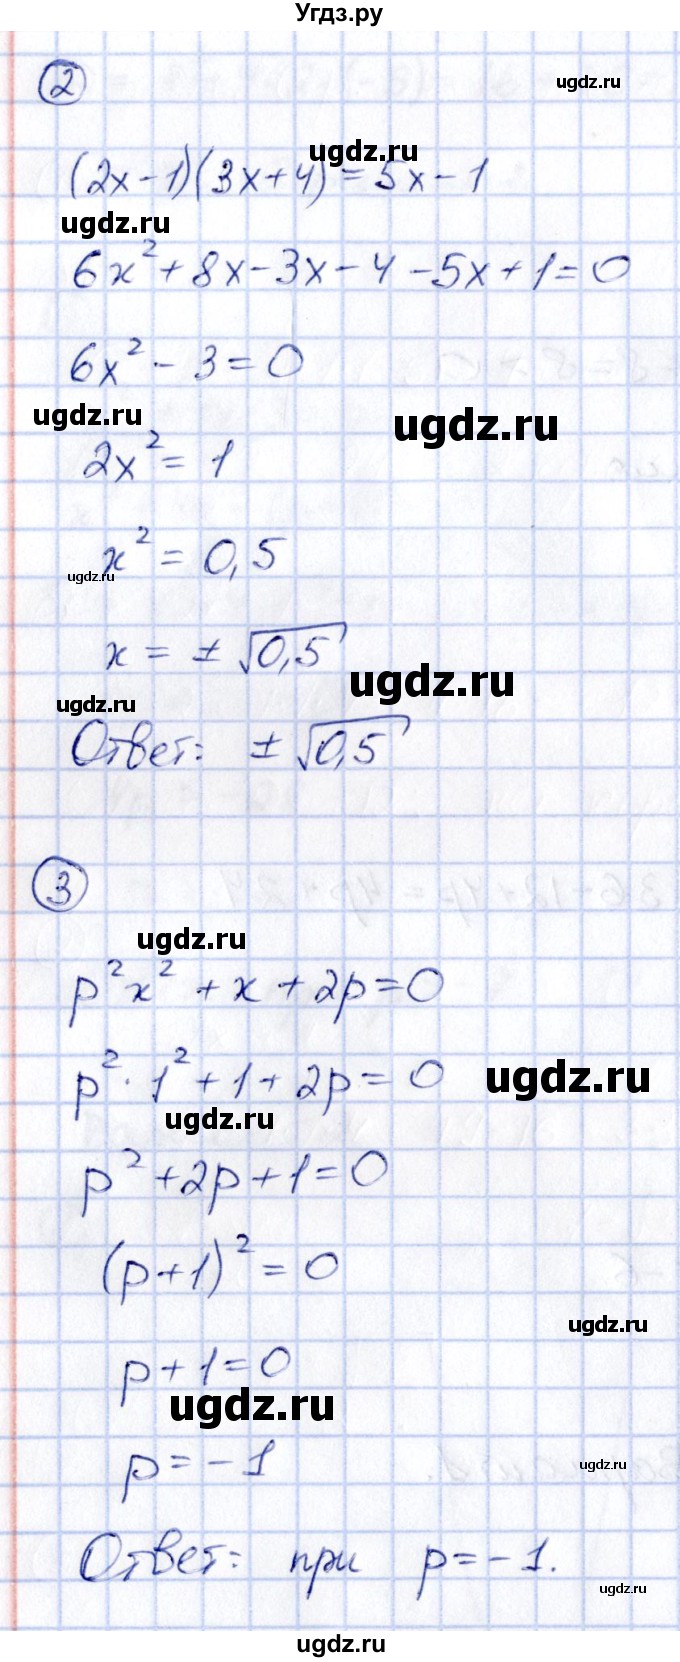 Угдз.ру
2
ugdz.ru
ugdz.ru
(2x-1)(3x+4)=5x-1
ugdz.ru
6x²+8x-3x-4-5x+1=0
6x²-3=0
ugdz.ru
ugdz.ru
2x²=1
x²=0,5
ugdz.ru
x=±√0,5
ugdz.ru
ugdz.ru
Ответ: ±√0,5
3
ugdz.ru
p²x²+x+2p=0
p²·1²+1+2p=0
ugdz.ru
ugdz.ru
p²+2p+1=0
(p+1)²=0
ugdz.ru
p+1=0
ugdz.ru
p=-1
ugdz.ru
Ответ: при p=-1.
ugdz.ru
ugdz.ru